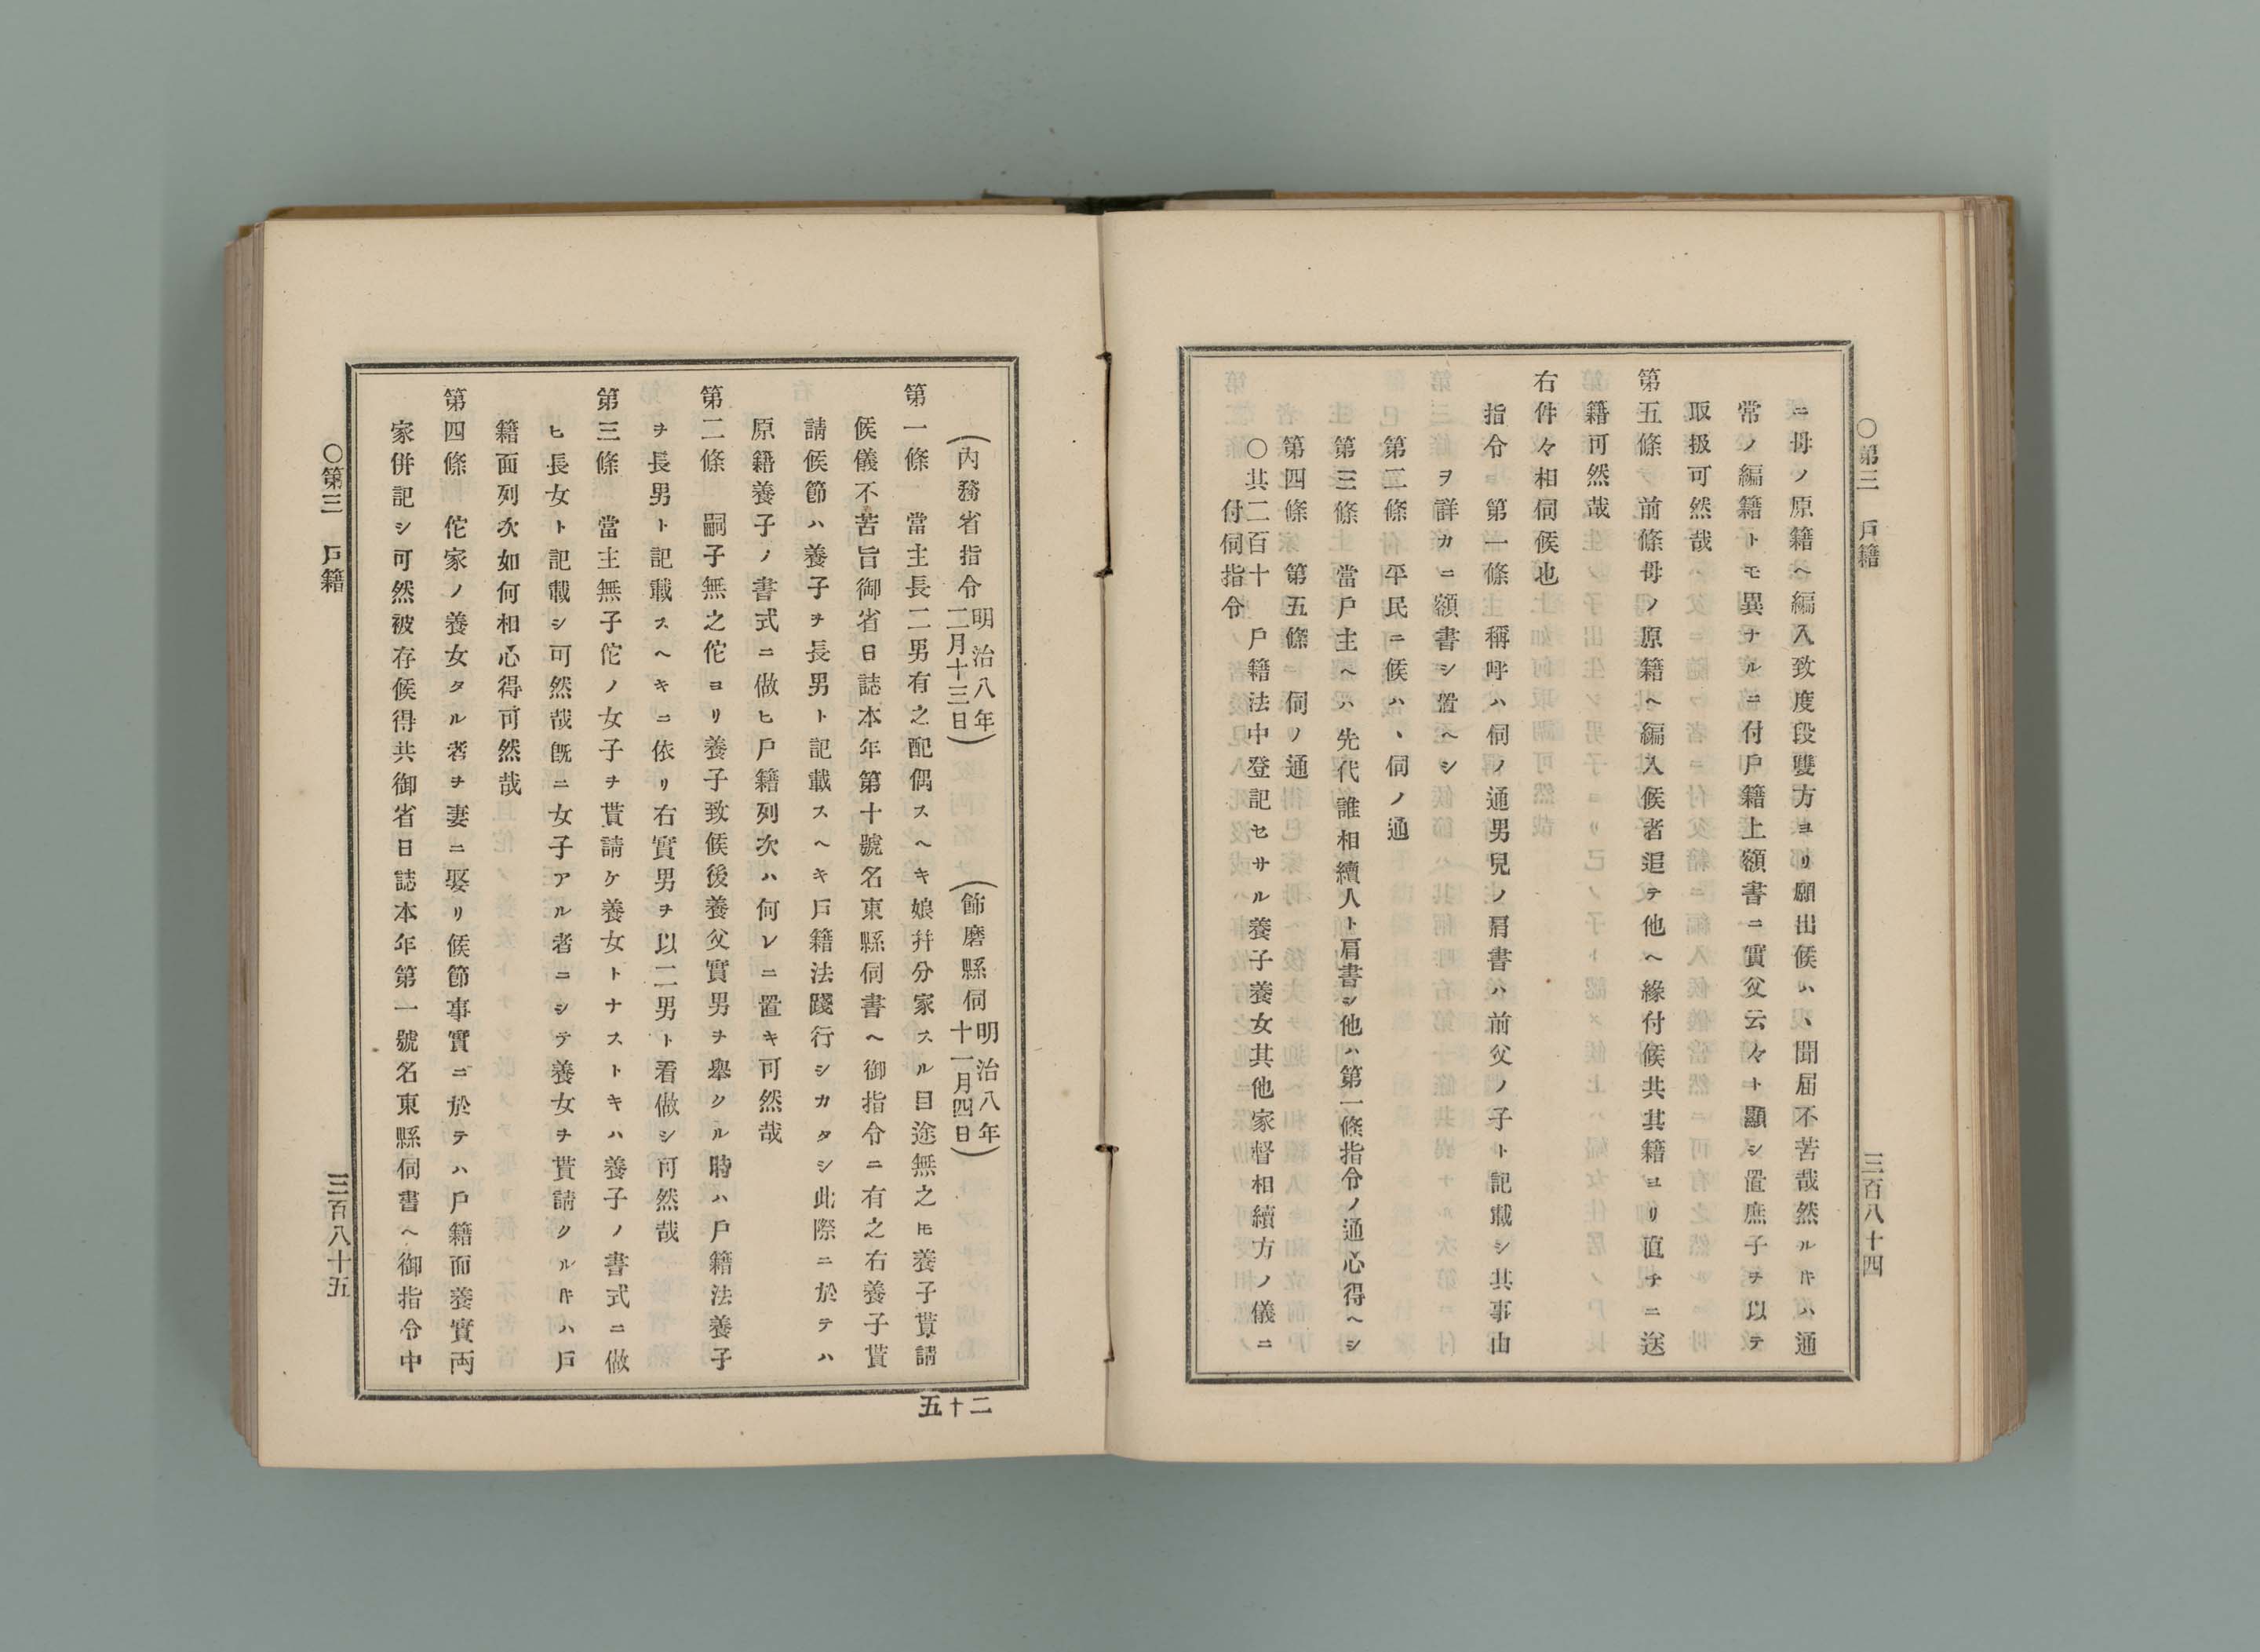 〇第三　戶籍
三百八十四
ニ母ノ原籍ヘ編入致度段雙方ヨリ願出候ハヽ聞屆不苦哉然ルキハ通
常ノ編籍トモ異ナルニ付戶籍上額書ニ實父云々ト顯シ置庶子ヲ以テ
取扱可然哉
第五條　前條母ノ原籍ヘ編入候者追テ他ヘ緣付候共其籍ヨリ直チニ送
籍可然哉
右件々相伺候也
指令　第一條　稱呼ハ伺ノ通男兒ノ肩書ハ前父ノ子ト記載シ其事由
ヲ詳カニ額書シ置ヘシ
第二條　平民ニ候ハヽ伺ノ通
第三條　當戶主ヘハ先代誰相續人ト肩書シ他ハ第一條指令ノ通心得ヘシ
第四條　第五條　伺ノ通
〇其二百十　戶籍法中登記セサル養子養女其他家督相續方ノ儀ニ
付伺指令
(內務省指令明治八年二月十三日)　(飾磨縣伺明治八年十一月四日)
第一條　當主長二男有之配偶スヘキ娘幷分家スル目途無之モ養子貰請
候儀不苦旨御省日誌本年第十號名東縣伺書ヘ御指令ニ有之右養子貰
請候節ハ養子ヲ長男ト記載スヘキ戶籍法踐行シカタシ此際ニ於テハ
原籍養子ノ書式ニ倣ヒ戶籍列次ハ何レニ置キ可然哉
第二條　嗣子無之佗ヨリ養子致候後養父實男ヲ擧クル時ハ戶籍法養子
ヲ長男ト記載スヘキニ依リ右實男ヲ以二男ト看做シ可然哉
第三條　當主無子佗ノ女子ヲ貰請ケ養女トナストキハ養子ノ書式ニ倣
ヒ長女ト記載シ可然哉旣ニ女子アル者ニシテ養女ヲ貰請クルキハ戶
籍面列次如何相心得可然哉
第四條　佗家ノ養女タル者ヲ妻ニ娶リ候節事實ニ於テハ戶籍面養實兩
家併記シ可然被存候得共御省日誌本年第一號名東縣伺書ヘ御指令中
〇第三　戶籍
三百八十五
二十五